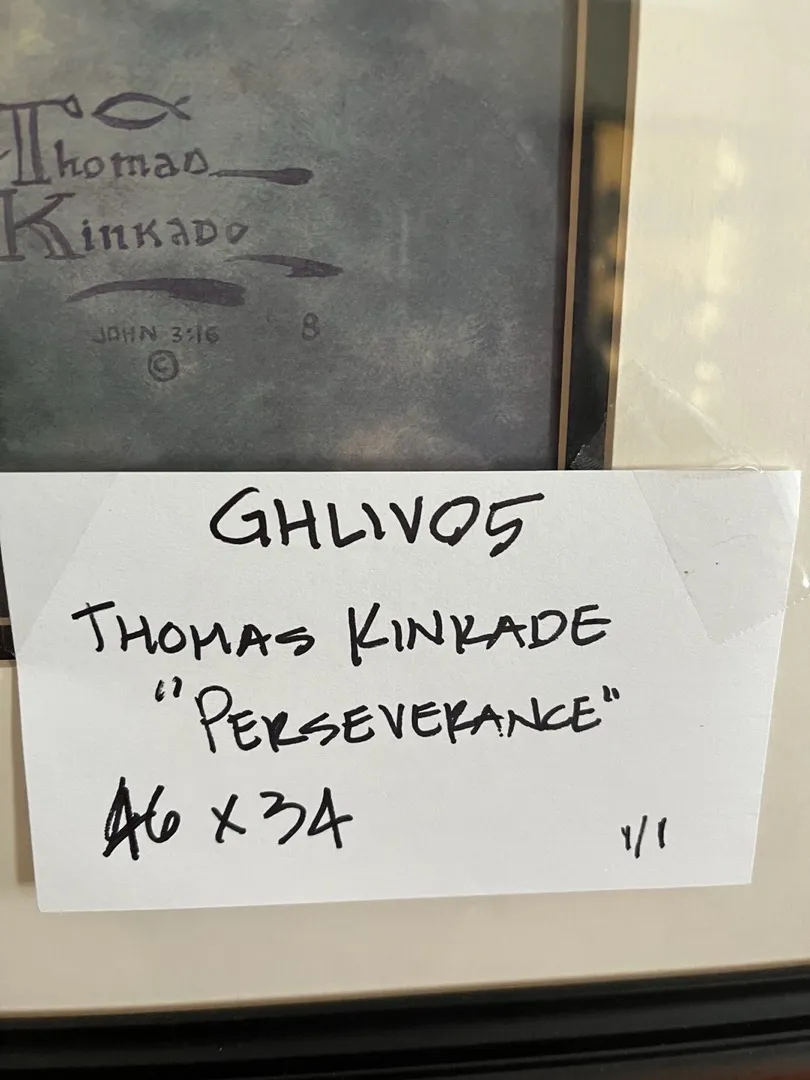 Thomas
Kinkade
JOHN 3:16 8
©
GHLIV05
THOMAS KINKADE
"PERSEVERANCE"
46 x 34
1/1